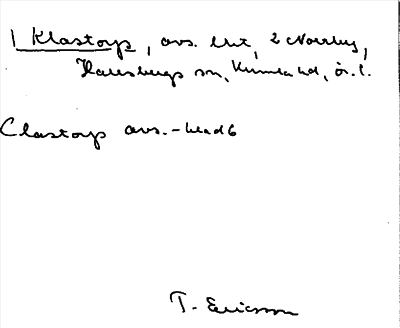 1 Klastorp, avs. lht, 2 Norrby,
Hallsbergs sn, Kumla hd, ör. l.
Clastorp avs.-
T. Ericsson